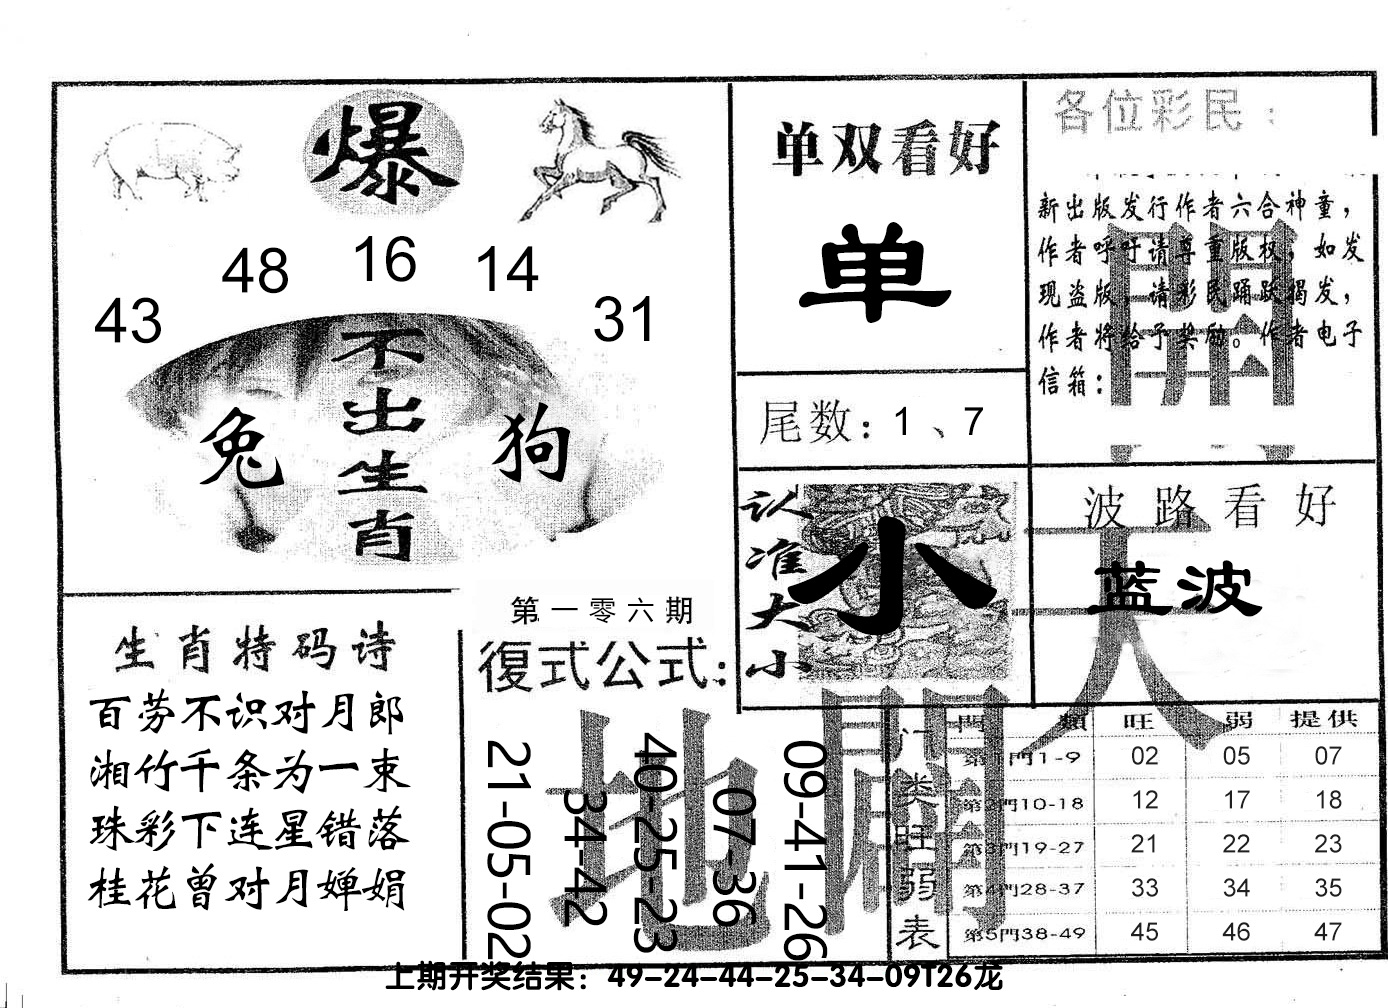 爆
43 48 16 14 31
不出生肖
兔 狗
单双看好
单
尾数：1、7
各位彩民：
新出版发行作者六合神童，
作者呼吁请尊重版权，如发
现盗版，请彩民踊跃揭发，
作者将给予奖励。作者电子
信箱：
認准大小
小
波路看好
蓝波
生肖特码诗
百劳不识对月郎
湘竹千条为一束
珠彩下连星错落
桂花曾对月婵娟
第一零六期
復式公式：
21-05-02
34-42
40-25-23
07-36
09-41-26
天
開
地
闢
门类旺弱表
門類 旺 弱 提供
第1門1-9 02 05 07
第2門10-18 12 17 18
第3門19-27 21 22 23
第4門28-37 33 34 35
第5門38-49 45 46 47
上期开奖结果：49-24-44-25-34-09T26龙